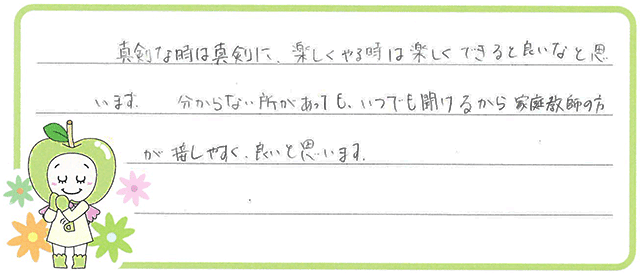 真剣な時は真剣に、楽しくやる時は楽しくできると良いなと思
います。 分からない所があっても、いつでも聞けるから家庭教師の方
が接しやすく、良いと思います。